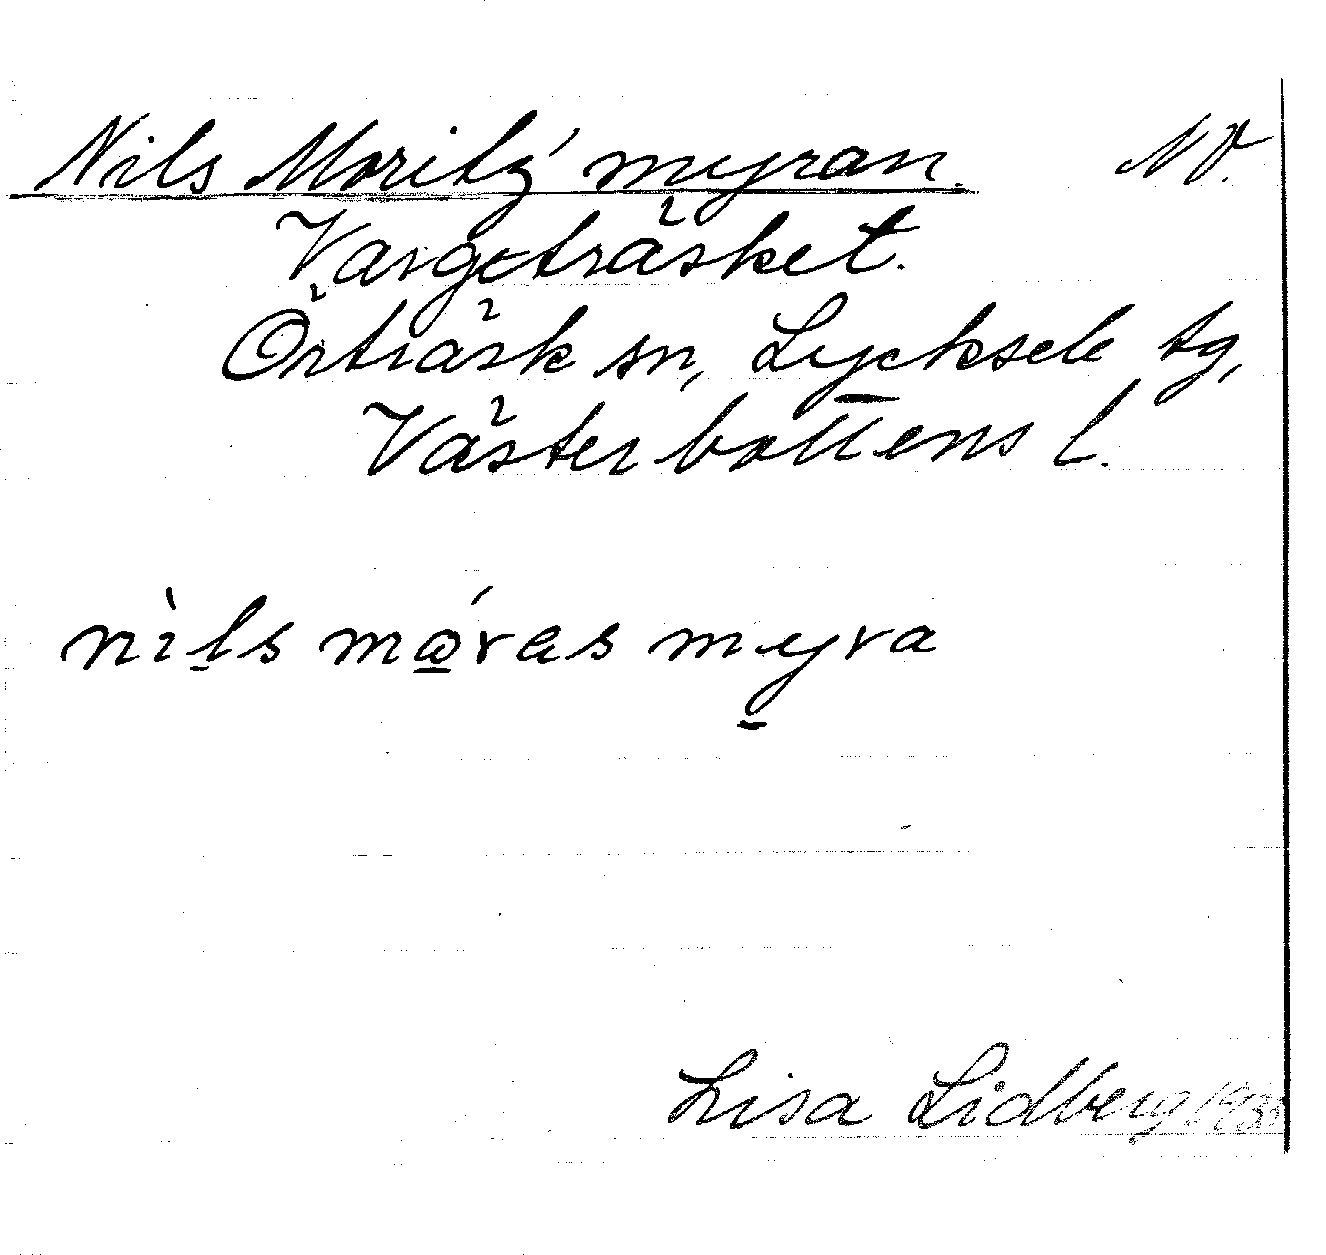 Nils Moritz' myran. NV.
Vargeträsket.
Örträsk sn, Lycksele tg,
Västerbottens l.
nìl̠s mώ̠ras my̠ra
Lisa Lidberg